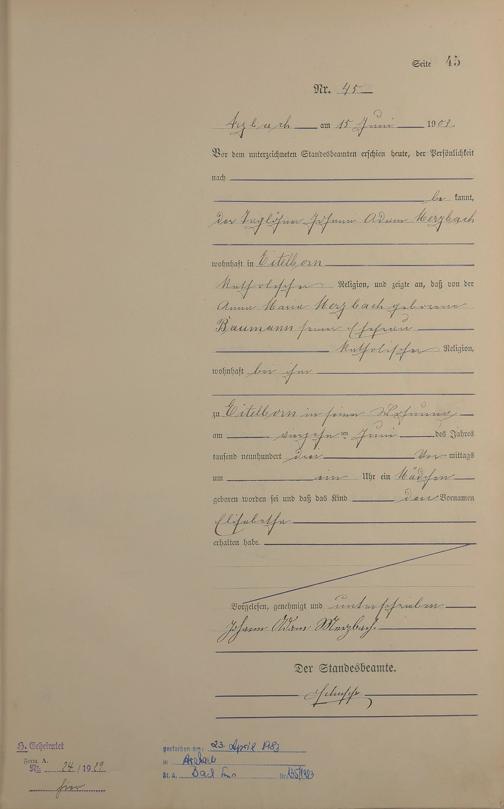 Seite 45
Nr. 45
Arzbach am 15 Juni 1903
Vor dem unterzeichneten Standesbeamten erschien heute, der Persönlichkeit
nach
be kannt,
der Taglöhner Johann Adam Merzbach
wohnhaft in Eitelborn
katholischer Religion, und zeigte an, daß von der
Anna Maria Merzbach geborene
Baumann seiner Ehefrau
katholischer Religion,
wohnhaft bei ihm
zu Eitelborn in seiner Wohnung
am Juni des Jahres
tausend neunhundert drei Vor mittags
um ein Uhr ein Mädchen
geboren worden sei und daß das Kind den Vornamen
Elisabetha
erhalten habe.
Vorgelesen, genehmigt und unterschrieben
Johann Adam Merzbach
Der Standesbeamte.
H. Geheiratet
Form. A.
Nr. 24/1929
gestorben am: 23 April 1983
in Arzbach
St. A. Bad Ems Nr.